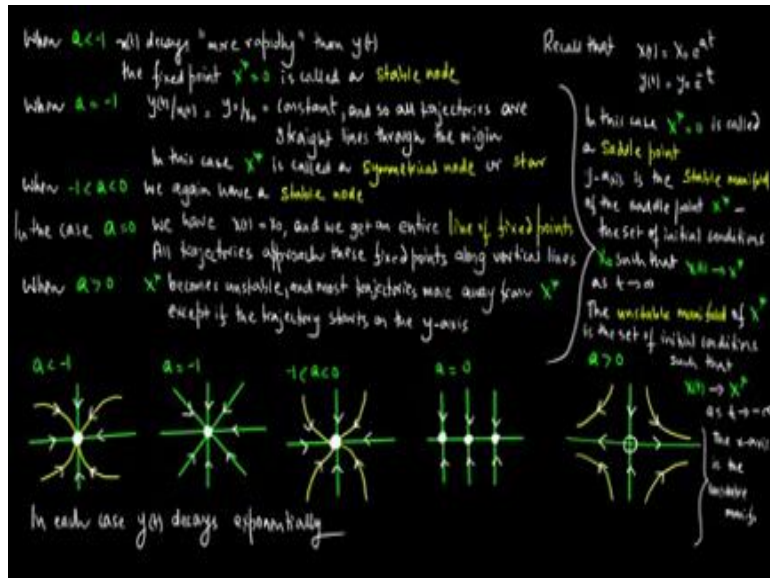 When a<-1 x(t) decays "more rapidly" than y(t)
the fixed point x*=0 is called a stable node
When a = -1 y(t)/x(t) = y₀/x₀ = constant, and so all trajectories are
straight lines through the origin
In this case x* is called a symmetrical node or star
When -1<a<0 we again have a stable node
In the case a=0 we have x(t) = x₀, and we get an entire line of fixed points
All trajectories approach these fixed points along vertical lines
When a>0 x* becomes unstable, and most trajectories move away from x*
except if the trajectory starts on the y-axis
Recall that x(t) = x₀ e^at
y(t) = y₀ e^-t
In this case x*=0 is called
a saddle point
y-axis is the stable manifold
of the saddle point x* -
the set of initial conditions
x₀ such that x(t) → x*
as t→∞
The unstable manifold of x*
is the set of initial conditions
such that
x(t) → x*
as t→-∞
The x-axis
is the
unstable
manifo
a<-1
a=-1
-1<a<0
a=0
a>0
In each case y(t) decays exponentially